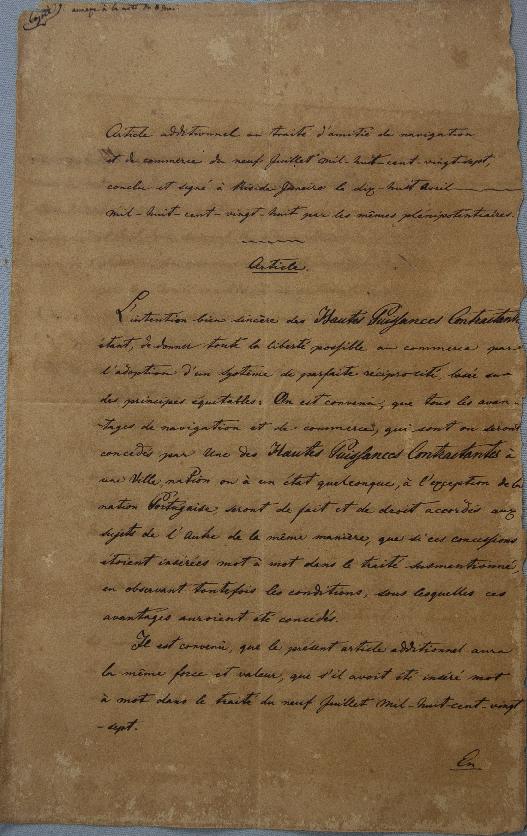 Copié annexe à la note du 8 Juin.
Article additionnel au traité d'amitié de navigation
et de commerce du neuf Juillet mil-huit-cent-vingt sept,
conclu et signé à Rio de Janeiro le dix-huit Avril
mil-huit-cent-vingt-huit par les mêmes plénipotentiaires.
Article.
L'intention bien sincère des Hautes Puissances Contractantes
étant, de donner toute la liberté possible au commerce par
l'adoption d'un système de parfaite réciprocité, basé sur
des principes équitables: On est convenu, que tous les avan-
tages de navigation et de commerce, qui sont ou seront
concédés par Une des Hautes Puissances Contractantes à
une Ville, nation ou à un état quelconque, à l'exception de la
nation Portugaise, seront de fait et de droit accordés aux
sujets de l'Autre de la même manière, que si ces concessions
étoient insérées mot à mot dans le traité susmentionné,
en observant toutefois les conditions, sous lesquelles ces
avantages auroient été concédés.
Il est convenu, que le présent article additionnel aura
la même force et valeur, que s'il avoit été inséré mot
à mot dans le traité du neuf Juillet mil-huit-cent-vingt
-sept.
En